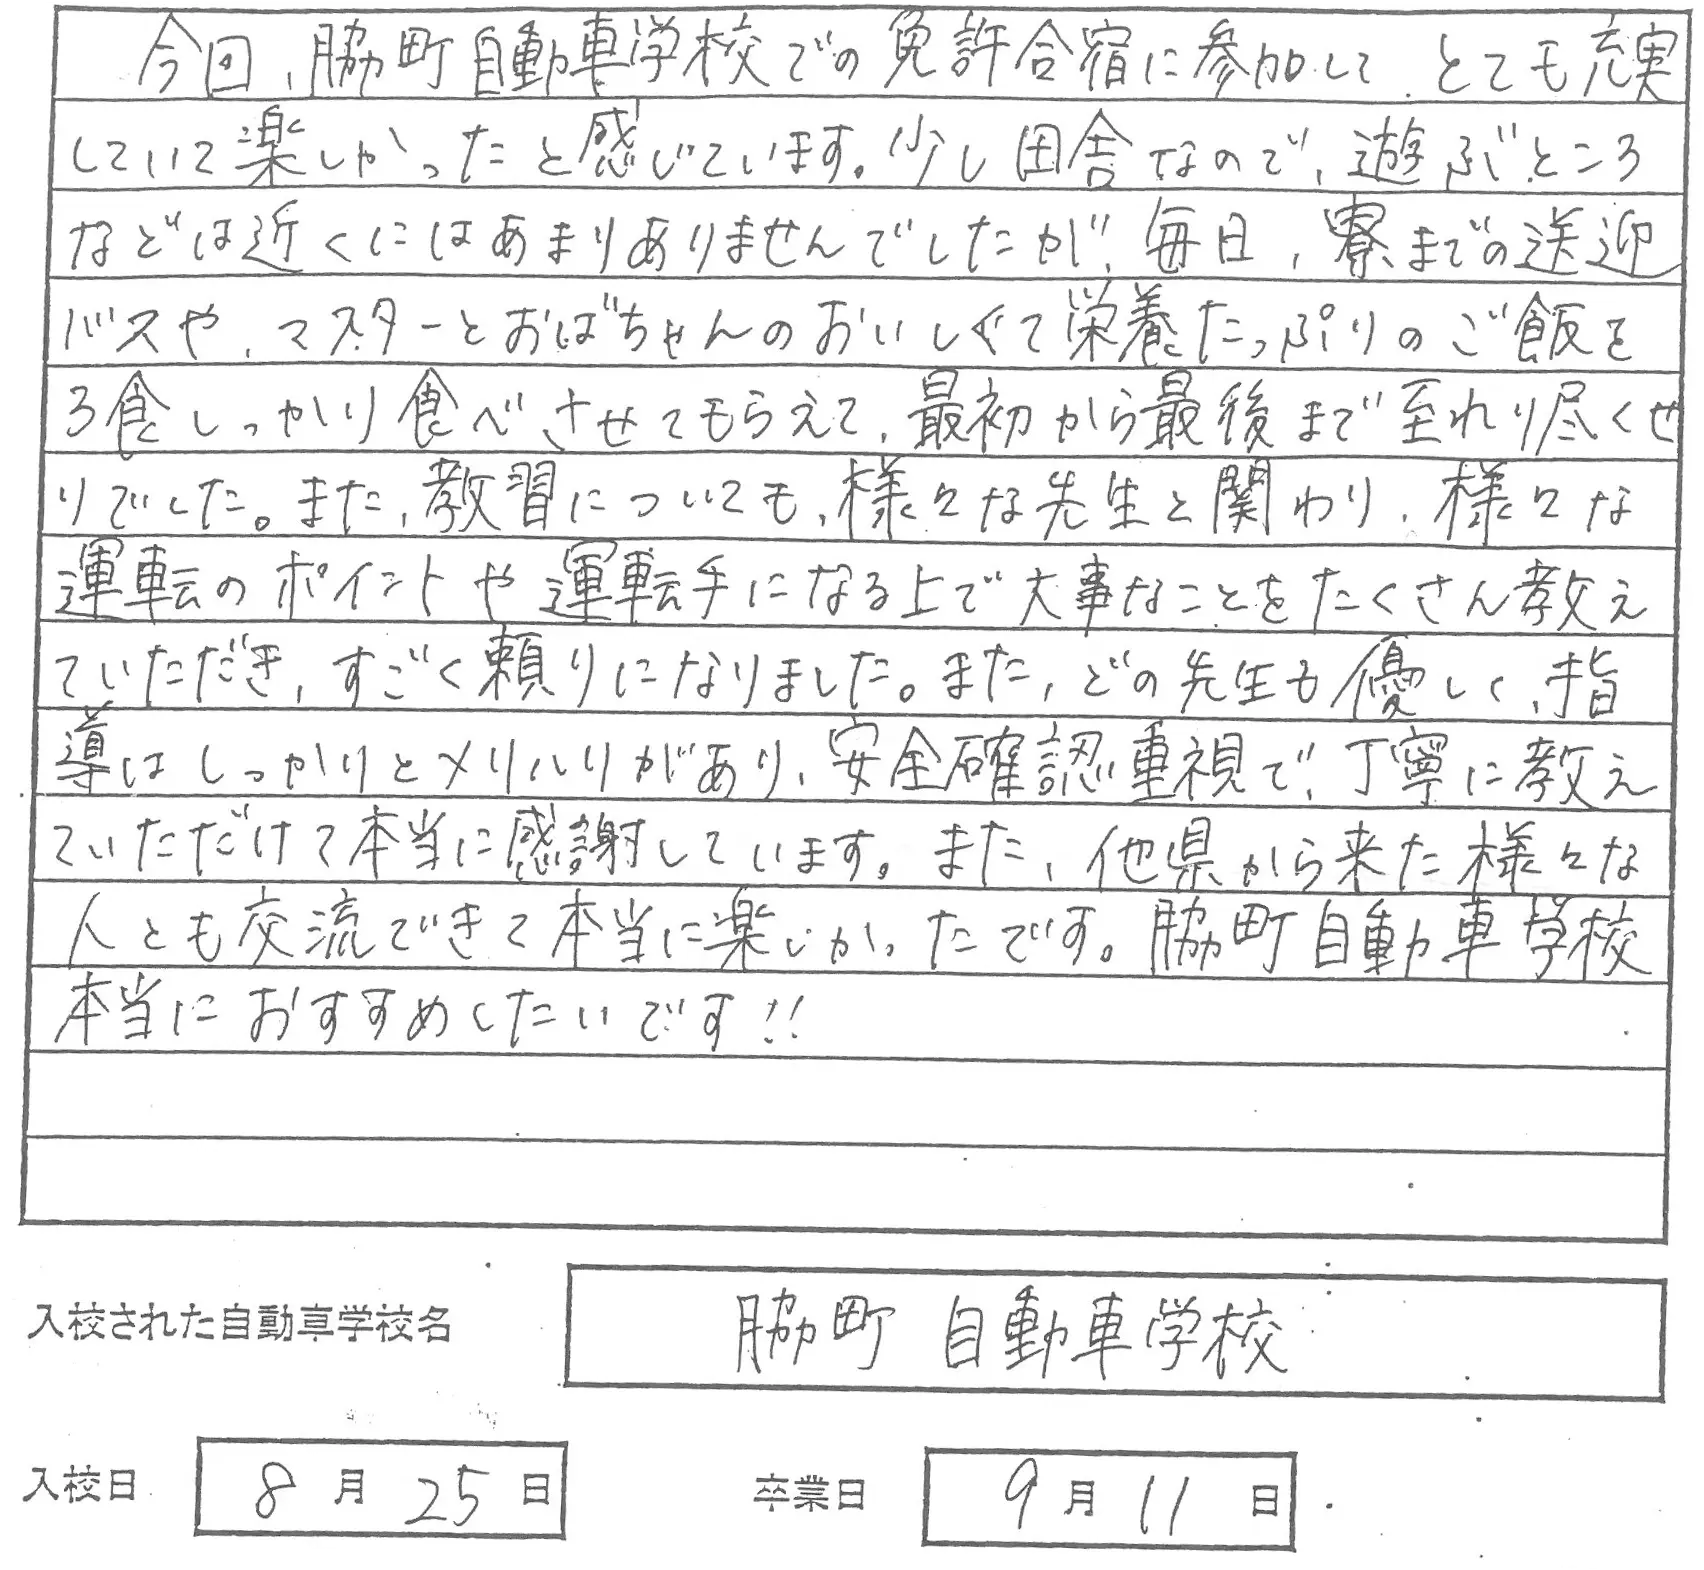 今回、脇町自動車学校での免許合宿に参加して、とても充実
していて楽しかったと感じています。少し田舎なので、遊ぶところ
などは近くにはあまりありませんでしたが、毎日、寮までの送迎
バスや、マスターとおばちゃんのおいしくて栄養たっぷりのご飯を
3食しっかり食べさせてもらえて、最初から最後まで至れり尽くせ
りでした。また、教習についても、様々な先生と関わり、様々な
運転のポイントや運転手になる上で大事なことをたくさん教え
ていただき、すごく頼りになりました。また、どの先生も優しく、指
導はしっかりとメリハリがあり、安全確認重視で、丁寧に教え
ていただけて本当に感謝しています。また、他県から来た様々な
人とも交流できて本当に楽しかったです。脇町自動車学校
本当におすすめしたいです!!
入校された自動車学校名 脇町自動車学校
入校日 8月25日 卒業日 9月11日